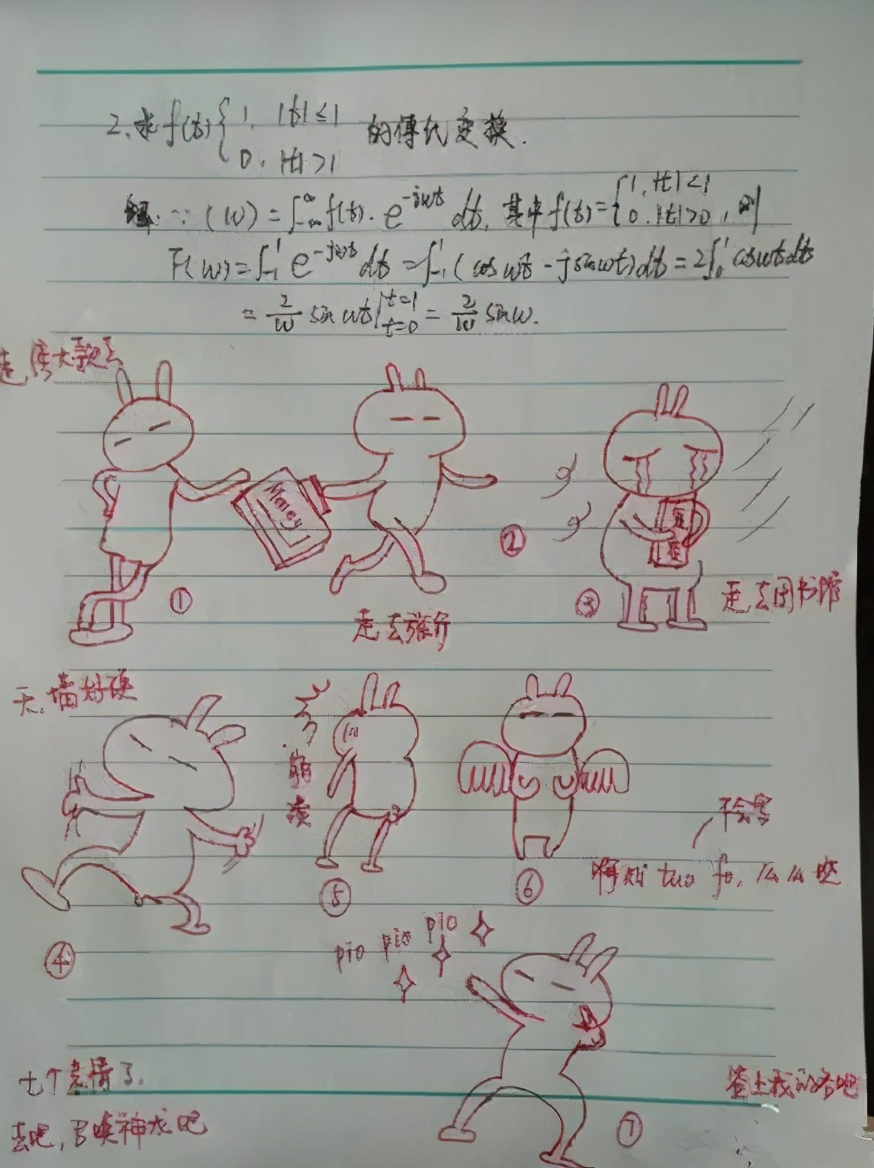 2.求f(t){1, |t|≤1
0, |t|>1 的傅氏变换.
解: ∵ (w)=∫_{-∞}^{∞}f(t)·e^{-jwt}dt, 其中f(t)={1, |t|<1
0, |t|>0, 则
F(w)=∫_{-1}^{1}e^{-jwt}dt=∫_{-1}^{1}(coswt-jsinwt)dt=2∫_{0}^{1}coswtdt
=2/w sinwt|_{t=0}^{t=1}=2/w sinw.
走,傍大款去
Money
①
②
走去推介
③
走去图书馆
天,墙好硬
④
崩溃
⑤
⑥
不会写
啊如 tuo fo,
pio pio pio
⑦
七个表情了,
去吧,召唤神龙吧
签上我的名吧